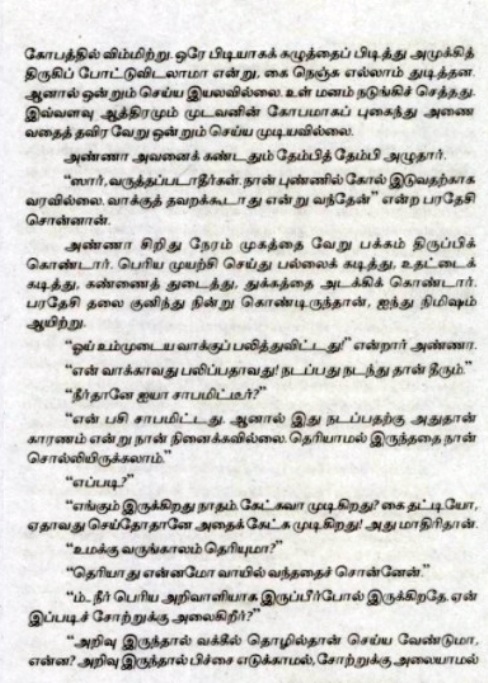 கோபத்தில் விம்மிற்று. ஒரே பிடியாகக் கழுத்தைப் பிடித்து அமுக்கித்
திருகிப் போட்டுவிடலாமா என்று, கை நெஞ்சு எல்லாம் துடித்தன.
ஆனால் ஒன்றும் செய்ய இயலவில்லை. உள் மனம் நடுங்கிச் செத்தது.
இவ்வளவு ஆத்திரமும் முடவனின் கோபமாகப் புகைந்து அணை
வதைத் தவிர வேறு ஒன்றும் செய்ய முடியவில்லை.
அண்ணா அவனைக் கண்டதும் தேம்பித் தேம்பி அழுதார்.
“ஸார், வருத்தப்படாதீர்கள். நான் புண்ணில் கோல் இடுவதற்காக
வரவில்லை. வாக்குத் தவறக்கூடாது என்று வந்தேன்” என்ற பரதேசி
சொன்னான்.
அண்ணா சிறிது நேரம் முகத்தை வேறு பக்கம் திருப்பிக்
கொண்டார். பெரிய முயற்சி செய்து பல்லைக் கடித்து, உதட்டைக்
கடித்து, கண்ணைத் துடைத்து, துக்கத்தை அடக்கிக் கொண்டார்.
பரதேசி தலை குனிந்து நின்று கொண்டிருந்தான், ஐந்து நிமிஷம்
ஆயிற்று.
“ஓய் உம்முடைய வாக்குப் பலித்துவிட்டது!” என்றார் அண்ணா.
“என் வாக்காவது பலிப்பதாவது! நடப்பது நடந்து தான் தீரும்.”
“நீர்தானே ஐயா சாபமிட்டீர்?”
“என் பசி சாபமிட்டது. ஆனால் இது நடப்பதற்கு அதுதான்
காரணம் என்று நான் நினைக்கவில்லை. தெரியாமல் இருந்ததை நான்
சொல்லியிருக்கலாம்.”
“எப்படி?”
“எங்கும் இருக்கிறது நாதம். கேட்கவா முடிகிறது? கை தட்டியோ,
ஏதாவது செய்தோதானே அதைக் கேட்க முடிகிறது! அது மாதிரிதான்.
“உமக்கு வருங்காலம் தெரியுமா?”
“தெரியாது என்னமோ வாயில் வந்ததைச் சொன்னேன்.”
“ம்.. நீர் பெரிய அறிவாளியாக இருப்பீர்போல் இருக்கிறதே. ஏன்
இப்படிச் சோற்றுக்கு அலைகிறீர்?”
“அறிவு இருந்தால் வக்கீல் தொழில்தான் செய்ய வேண்டுமா,
என்ன? அறிவு இருந்தால் பிச்சை எடுக்காமல், சோற்றுக்கு அலையாமல்